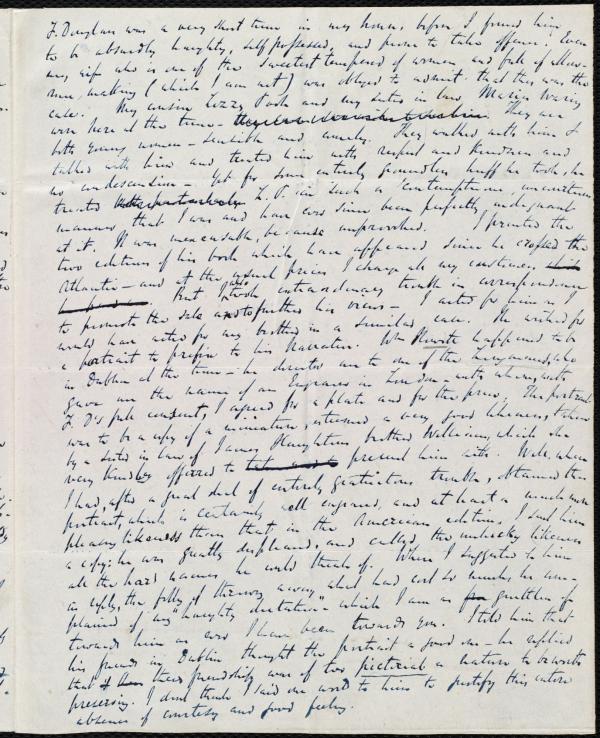 F. Douglass was a very short time in my house, before I found him
to be absurdly haughty, self possessed, and prone to take offence. Even
my wife who is one of the sweetest tempered of women and full of allow-
ance, making (which I am not) was obliged to admit that this was the
case. My cousin Lizzy Poole and my sister in law Maria Waring
were here at the time — They are
both young women — sensible and comely. They walked with him &
talked with him and treated him with respect and kindness and
no condescension. Yet for some entirely groundless huff he took, he
treated L. P. in such a contemptuous, unconscious
manner that I was and have ever since been perfectly indignant
at it. It was inexcusable, because unprovoked. I printed the
two editions of his book which have appeared since he crossed the
Atlantic — and at the usual prices I charge all my customers
But I also took extraordinary trouble in correspondence
to promote the sale and to further his views — I acted for him as I
would have acted for my brother in a similar case. He wished for
a portrait to prefix to his Narrative. Wm Hewitt happened to be
in Dublin at the time — he directed me to one of the who
gave me the name of an Engraver in London — with whom, with
F. D's full consent, I agreed for a plate and for the price. The portrait
was to be a copy of a miniature, esteemed a very good likeness, taken
by a sister in law of James Haughton's brother William, which she
very kindly offered to present him with. Well, when
I had, after a great deal of entirely gratuitous trouble, obtained this
portrait, which is certainly well engraved, and at least a much more
pleasing likeness than that in the American edition, I sent him
a copy: he was greatly displeased, and called the unlucky likeness
all the hard names he could think of. When I suggested to him
in reply, the folly of throwing away what had cost so much, he com-
plained of "my haughty dictation" which I am as guiltless of
towards him as ever I have been towards you. I told him that
his friends in Dublin thought the portrait a good one — he replied
that if their friendship was of too pictorial a nature to be worth
preserving. I dont think I said one word to him to justify this entire
absence of courtesy and good feeling.